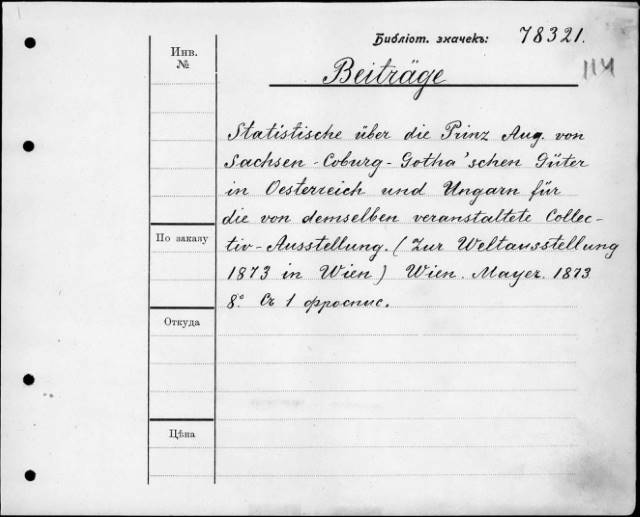 Библіот. значекъ: 78321.
114
Инв.
№
Beiträge
Statistische über die Prinz Aug. von
Sachsen-Coburg-Gotha'schen Güter
in Oesterreich und Ungarn für
die von demselben veranstaltete Collec-
tiv-Ausstellung. (Zur Weltausstellung
1873 in Wien) Wien. Mayer. 1873
8° Съ 1 фроспис.
По заказу
Откуда
Цѣна